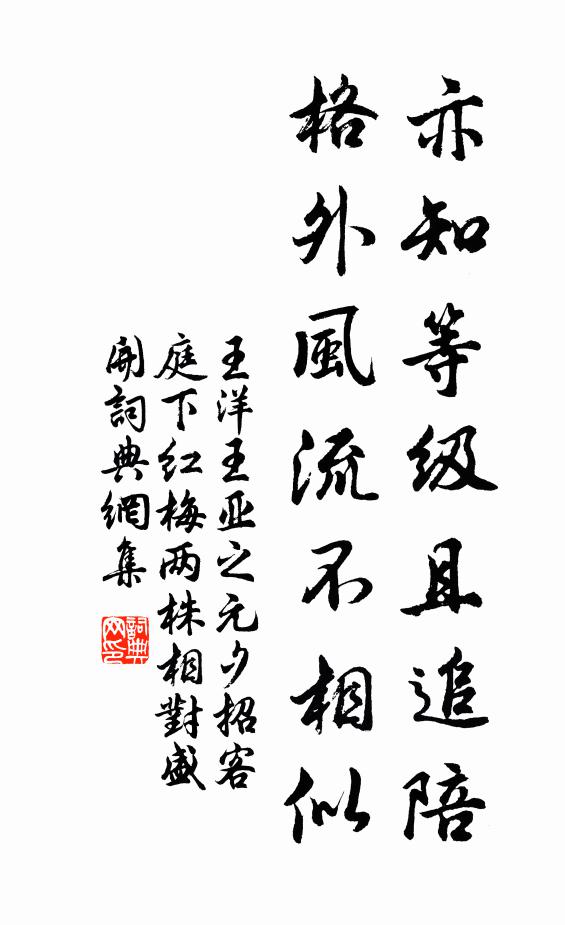 亦知等级且追陪
格外風流不相似
王洋王亚之元夕招客
庭下红梅两株相對盛
開詞典網集
詞典
网印